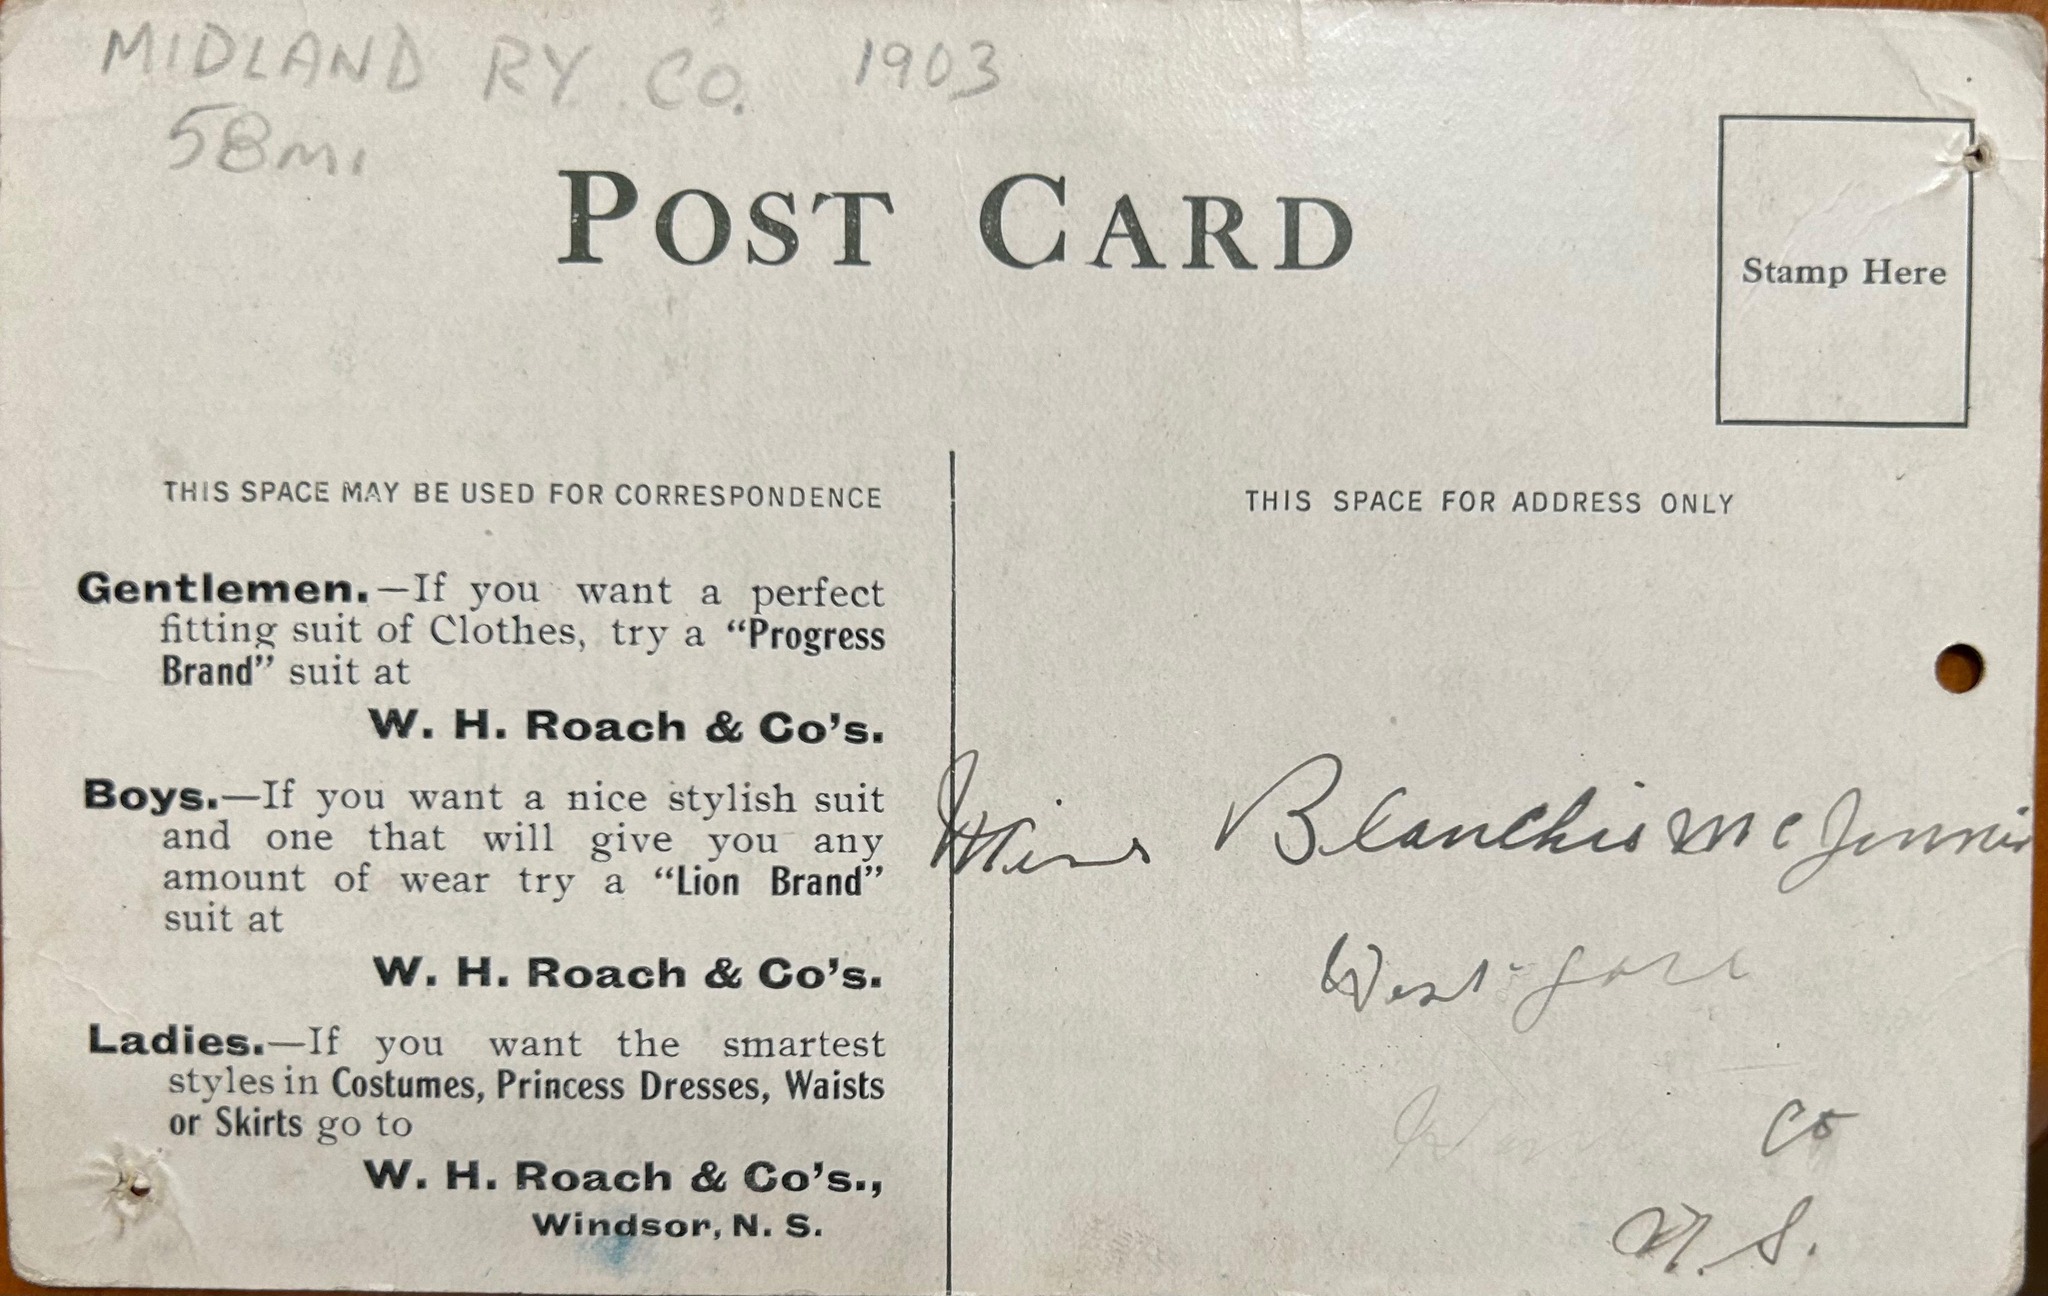 MIDLAND RY. CO. 1903
58 mi
POST CARD
Stamp Here
THIS SPACE MAY BE USED FOR CORRESPONDENCE
Gentlemen.—If you want a perfect
fitting suit of Clothes, try a "Progress
Brand" suit at
W. H. Roach & Co's.
Boys.—If you want a nice stylish suit
and one that will give you any
amount of wear try a "Lion Brand"
suit at
W. H. Roach & Co's.
Ladies.—If you want the smartest
styles in Costumes, Princess Dresses, Waists
or Skirts go to
W. H. Roach & Co's.,
Windsor, N. S.
THIS SPACE FOR ADDRESS ONLY
Miss
West Gore
Co
N. S.